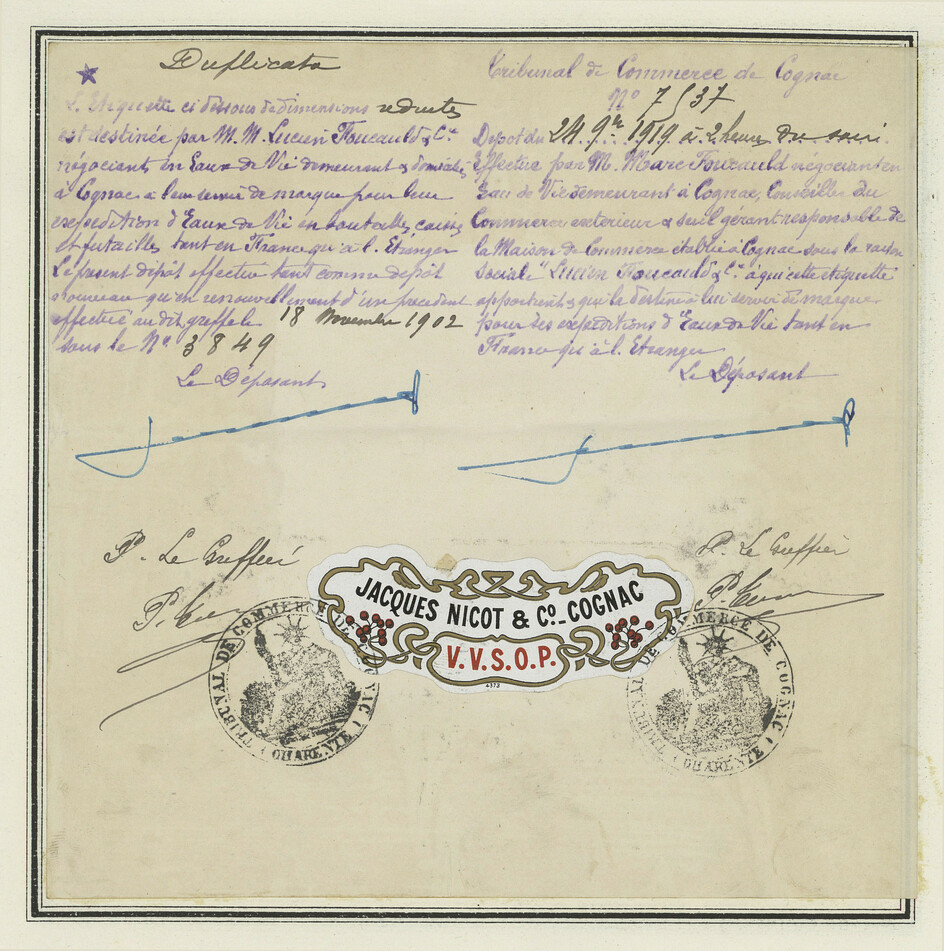 Duplicata
L'Etiquette ci dessous de dimensions reduites
est destinée par M.M. Lucien Foucauld & Cie
négociants en Eaux de Vie demeurant & domiciliés
à Cognac à leur servir de marque pour leur
expedition d'Eaux de Vie en bouteilles, caisses
et futailles tant en France qu'à l'Etranger
Le présent dépôt effectué tant comme depôt
nouveau qu'en renouvellement d'un precedent
effectué au dit greffe le 18 Novembre 1902
sous le No 3849
Le Déposant
Tribunal de Commerce de Cognac
No 7537
Depot du 24 9bre 1919 à 2 heures du soir
Effectué par M. Marc Foucauld négociant en
Eau de Vie demeurant à Cognac, Conseiller du
Commerce exterieur & seul gerant responsable de
la Maison de Commerce établie à Cognac sous la raison
sociale Lucien Foucauld & Cie à qui cette etiquette
appartient & qui la destine à lui servir de marque
pour ses expeditions d'Eaux de Vie tant en
France qu'à l'Etranger
Le Déposant
P. Le Greffier
P. Le Greffier
JACQUES NICOT & Co_COGNAC
V.V.S.O.P.
4373
TRIBUNAL DE COMMERCE DE COGNAC
(CHARENTE)
TRIBUNAL DE COMMERCE DE COGNAC
(CHARENTE)